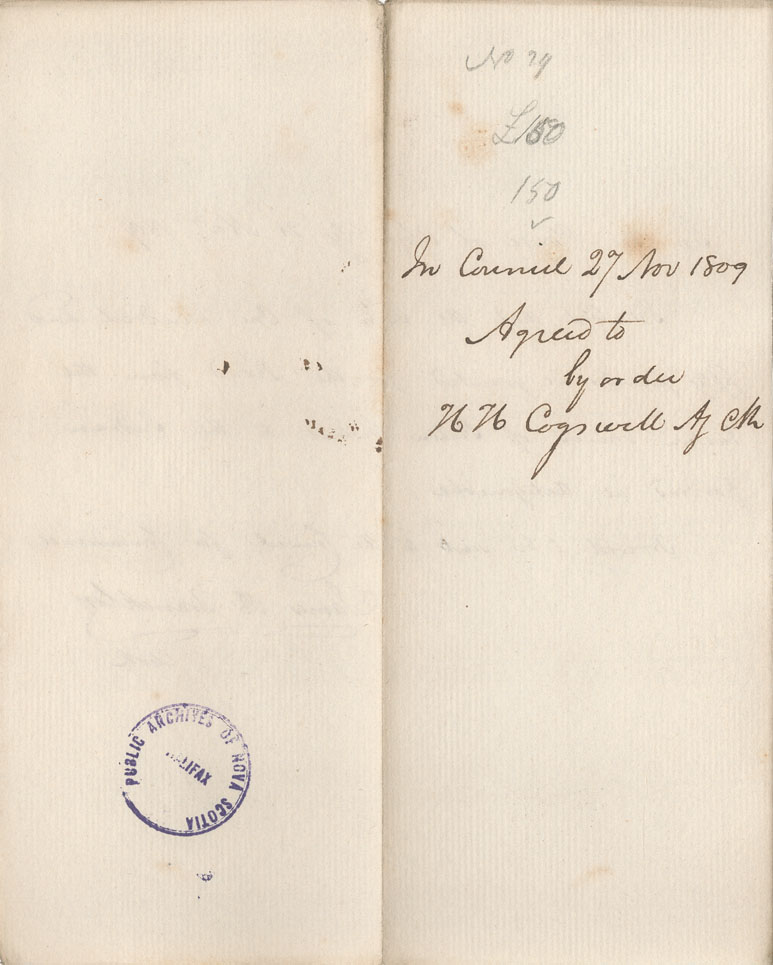 No 29
£150
150
In Council 27 Nov 1809
Agreed to
by order
H H Cogswell
PUBLIC ARCHIVES OF NOVA SCOTIA
HALIFAX